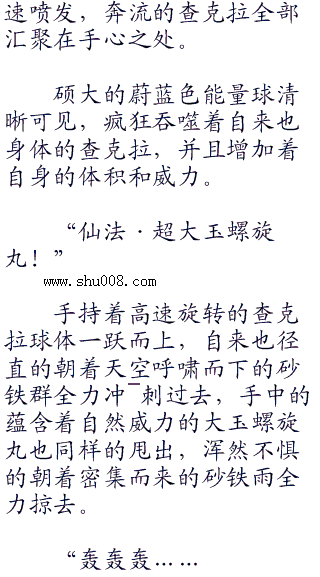 速喷发，奔流的查克拉全部
汇聚在手心之处。
硕大的蔚蓝色能量球清
晰可见，疯狂吞噬着自来也
身体的查克拉，并且增加着
自身的体积和威力。
“仙法·超大玉螺旋
丸！”
www.shu008.com
手持着高速旋转的查克
拉球体一跃而上，自来也径
直的朝着天空呼啸而下的砂
铁群全力冲¯刺过去，手中的
蕴含着自然威力的大玉螺旋
丸也同样的甩出，浑然不惧
的朝着密集而来的砂铁雨全
力掠去。
“轰轰轰……